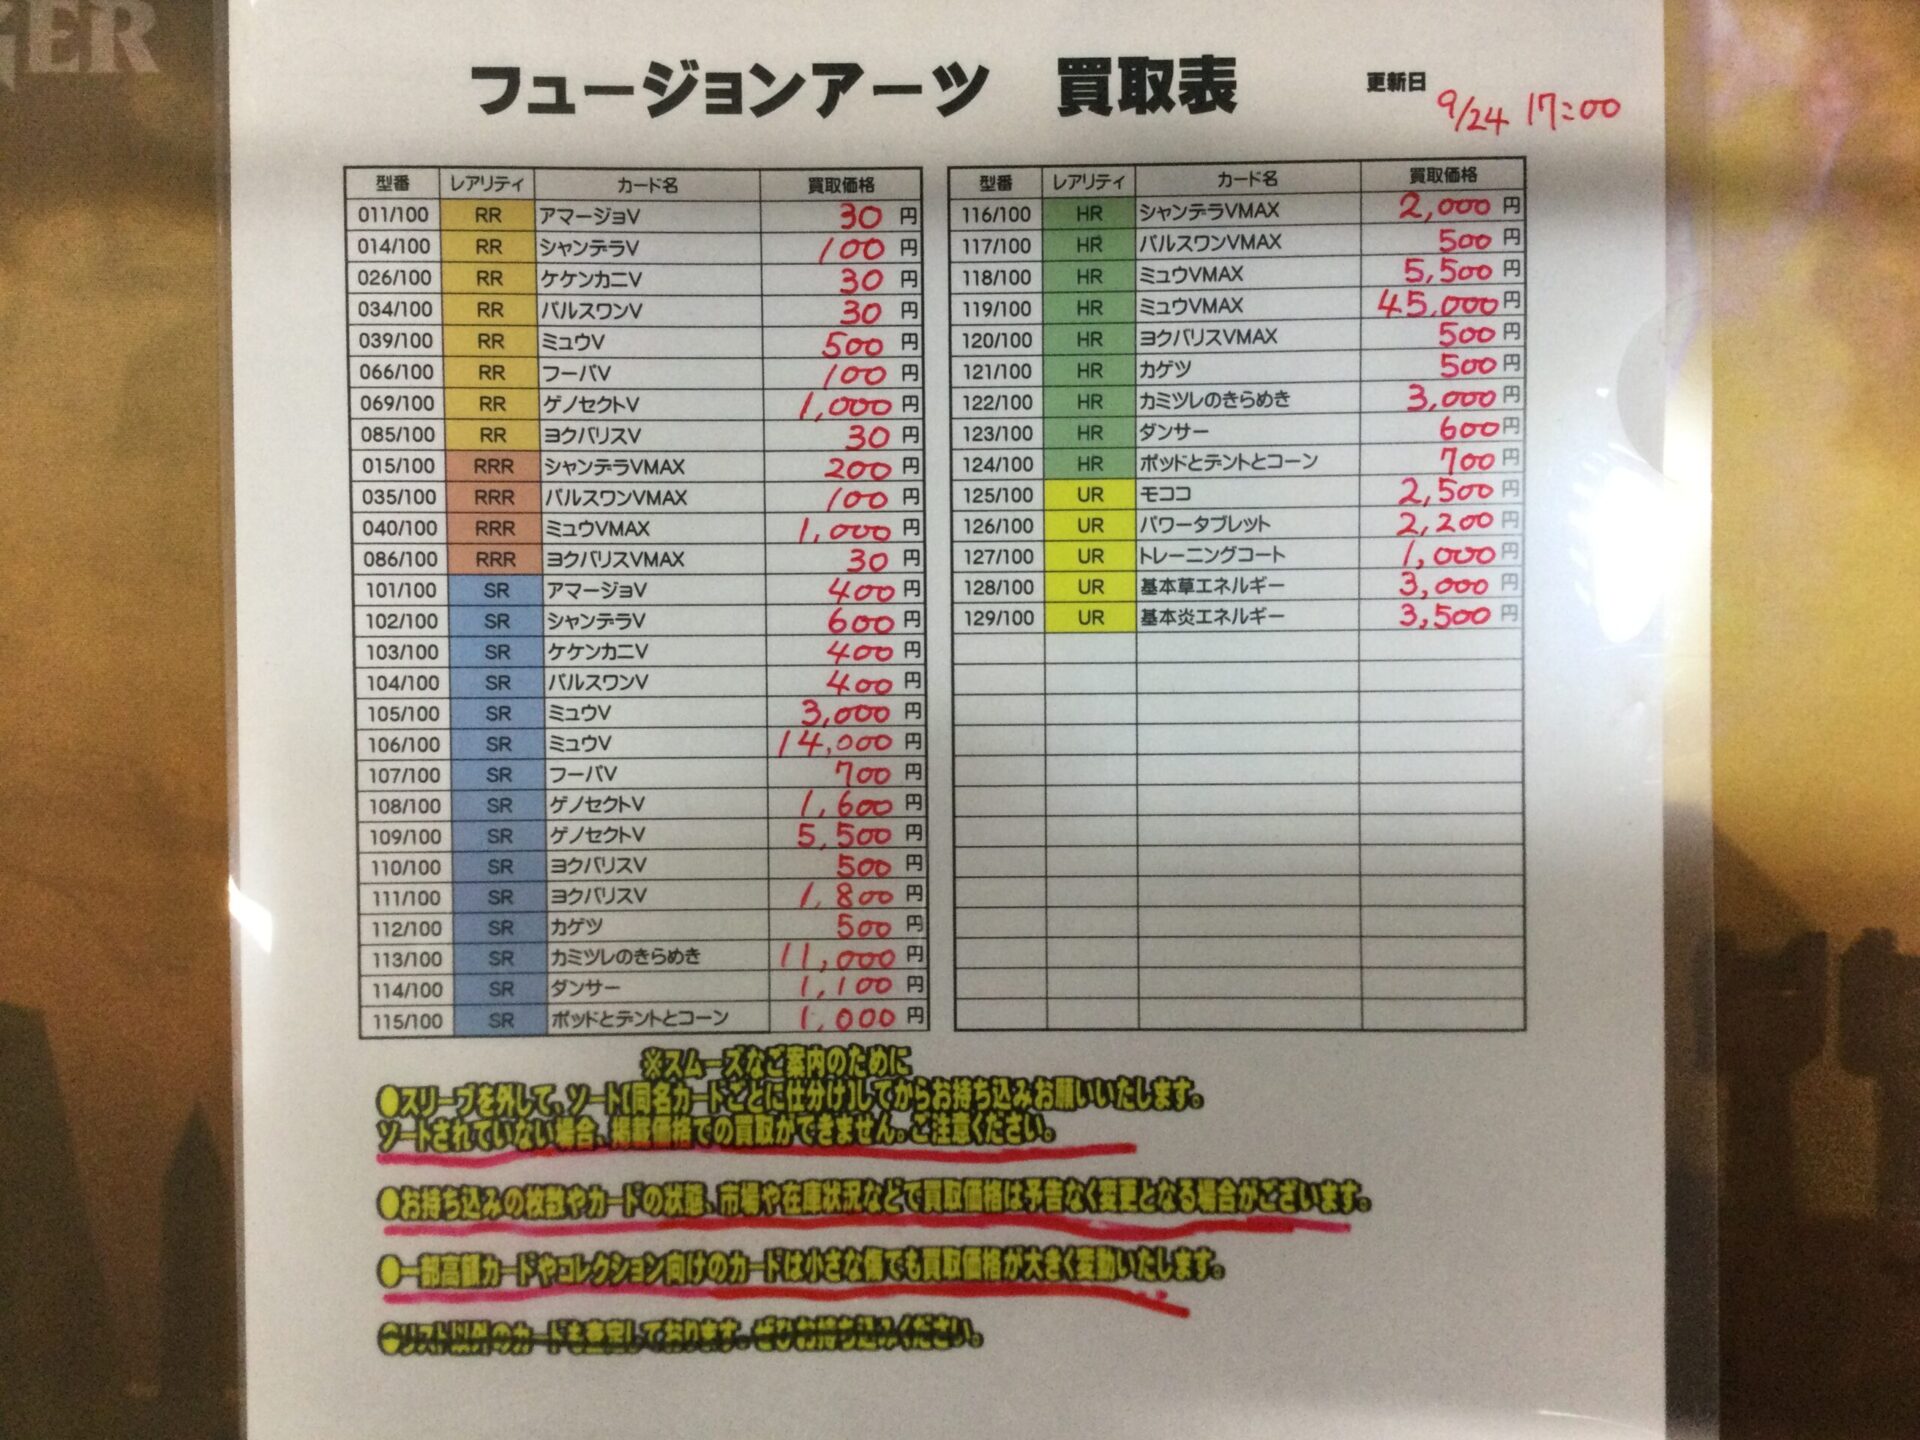 GER
フュージョンアーツ 買取表 更新日 9/24 17:00
型番 レアリティ カード名 買取価格
011/100 RR アマージョV 30 円
014/100 RR シャンデラV 100 円
026/100 RR ケケンカニV 30 円
034/100 RR パルスワンV 30 円
039/100 RR ミュウV 500 円
066/100 RR フーパV 100 円
069/100 RR ゲノセクトV 1,000 円
085/100 RR ヨクバリスV 30 円
015/100 RRR シャンデラVMAX 200 円
035/100 RRR パルスワンVMAX 100 円
040/100 RRR ミュウVMAX 1,000 円
086/100 RRR ヨクバリスVMAX 30 円
101/100 SR アマージョV 400 円
102/100 SR シャンデラV 600 円
103/100 SR ケケンカニV 400 円
104/100 SR パルスワンV 400 円
105/100 SR ミュウV 3,000 円
106/100 SR ミュウV 14,000 円
107/100 SR フーパV 700 円
108/100 SR ゲノセクトV 1,600 円
109/100 SR ゲノセクトV 5,500 円
110/100 SR ヨクバリスV 500 円
111/100 SR ヨクバリスV 1,800 円
112/100 SR カゲツ 500 円
113/100 SR カミツレのきらめき 11,000 円
114/100 SR ダンサー 1,100 円
115/100 SR ポッドとデントとコーン 1,000 円
型番 レアリティ カード名 買取価格
116/100 HR シャンデラVMAX 2,000 円
117/100 HR パルスワンVMAX 500 円
118/100 HR ミュウVMAX 5,500 円
119/100 HR ミュウVMAX 45,000 円
120/100 HR ヨクバリスVMAX 500 円
121/100 HR カゲツ 500 円
122/100 HR カミツレのきらめき 3,000 円
123/100 HR ダンサー 600 円
124/100 HR ポッドとデントとコーン 700 円
125/100 UR モココ 2,500 円
126/100 UR パワータブレット 2,200 円
127/100 UR トレーニングコート 1,000 円
128/100 UR 基本草エネルギー 3,000 円
129/100 UR 基本炎エネルギー 3,500 円
※スムーズなご案内のために
●スリーブを外して、ソート(同名カードごとに仕分け)してからお持ち込みお願いいたします。
ソートされていない場合、掲載価格での買取ができません。ご注意ください。
●お持ち込みの枚数やカードの状態、市場や在庫状況などで買取価格は予告なく変更となる場合がございます。
●一部高額カードやコレクション向けのカードは小さな傷でも買取価格が大きく変動いたします。
●リスト以外のカードも査定しております。ぜひお持ち込みください。